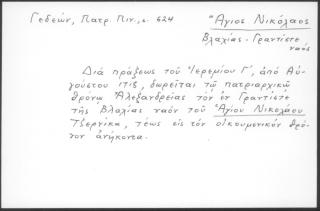 Γεδεών, Πατρ. Πιν., σ. 624
Ἅγιος Νικόλαος
Βλαχίας - Γραντίστε
ναός
Διὰ πράξεως τοῦ Ἱερεμίου Γ΄, ἀπὸ Αὐ-
γούστου 1718, δωρεῖται τῷ πατριαρχικῷ
θρόνῳ Ἀλεξανδρείας τὸν ἐν Γραντίστε
τῆς Βλαχίας ναὸν τοῦ Ἁγίου Νικολάου
Τζερνίκα, τέως εἰς τὸν οἰκουμενικὸν θρό-
νον ἀνήκοντα.